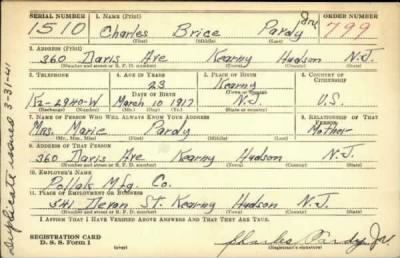 SERIAL NUMBER 1. NAME (Print) ORDER NUMBER
1510 Charles Brice Pardy Jr 799
(First) (Middle) (Last)
2. ADDRESS (Print)
360 Davis Ave Kearny Hudson N.J.
(Number and street or R. F. D. number) (Town) (County) (State)
3. TELEPHONE 4. AGE IN YEARS 5. PLACE OF BIRTH 6. COUNTRY OF CITIZENSHIP
23 Kearny
(Town or county)
Kz-2940-W March 10 1917 N.J. U.S.
(Exchange) (Number) (Mo.) (Day) (Yr.) (State or country)
7. NAME OF PERSON WHO WILL ALWAYS KNOW YOUR ADDRESS 8. RELATIONSHIP OF THAT PERSON
Mrs. Marie Pardy Mother
(Mr., Mrs., Miss) (First) (Middle) (Last)
9. ADDRESS OF THAT PERSON
360 Davis Ave Kearny Hudson N.J.
(Number and street or R. F. D. number) (Town) (County) (State)
10. EMPLOYER'S NAME
Pollak Mfg. Co.
11. PLACE OF EMPLOYMENT OR BUSINESS
541 Devon St. Kearny Hudson N.J.
(Number and street or R. F. D. number) (Town) (County) (State)
I AFFIRM THAT I HAVE VERIFIED ABOVE ANSWERS AND THAT THEY ARE TRUE.
REGISTRATION CARD
D. S. S. Form 1 (over) Charles Pardy Jr
(Registrant's signature)
Duplicate issued 3-31-41